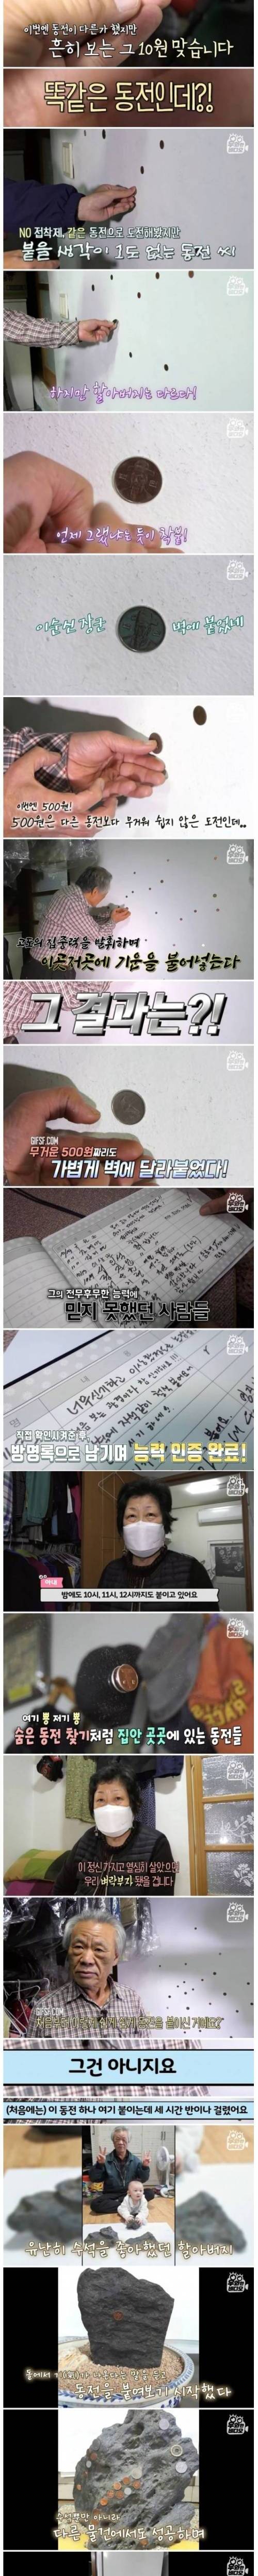 이번엔 동전이 다른가 했지만
흔히 보는 그 10원 맞습니다
똑같은 동전인데?!
NO 접착제, 같은 동전으로 도전해봤지만
붙을 생각이 1도 없는 동전 씨
하지만 할아버지는 다르다!
언제 그랬냐는 듯이 착붙!
이순신 장군 벽에 붙었네
이번엔 500원!
500원은 다른 동전보다 무거워 쉽지 않은 도전인데..
고도의 집중력을 발휘하며
이곳저곳에 기운을 불어넣는다
그 결과는?!
GIFSF.COM
무거운 500원짜리도
가볍게 벽에 달라붙었다!
그의 전무후무한 능력에
믿지 못했던 사람들
직접 확인시켜준 후,
방명록으로 남기며 능력 인증 완료!
아내
밤에도 10시, 11시, 12시까지도 붙이고 있어요
여기 뿅 저기 뿅
숨은 동전 찾기처럼 집안 곳곳에 있는 동전들
이 정신 가지고 열심히 살았으면
우리 벼락부자 됐을 겁니다
GIFSF.COM
그건 아니지요
(처음에는) 이 동전 하나 여기 붙이는데 세 시간 반이나 걸렸어요
유난히 수석을 좋아했던 할아버지
돌에서 기(氣)가 나온다는 말을 듣고
동전을 붙여보기 시작했다
수석뿐만 아니라
다른 물건에서도 성공하며